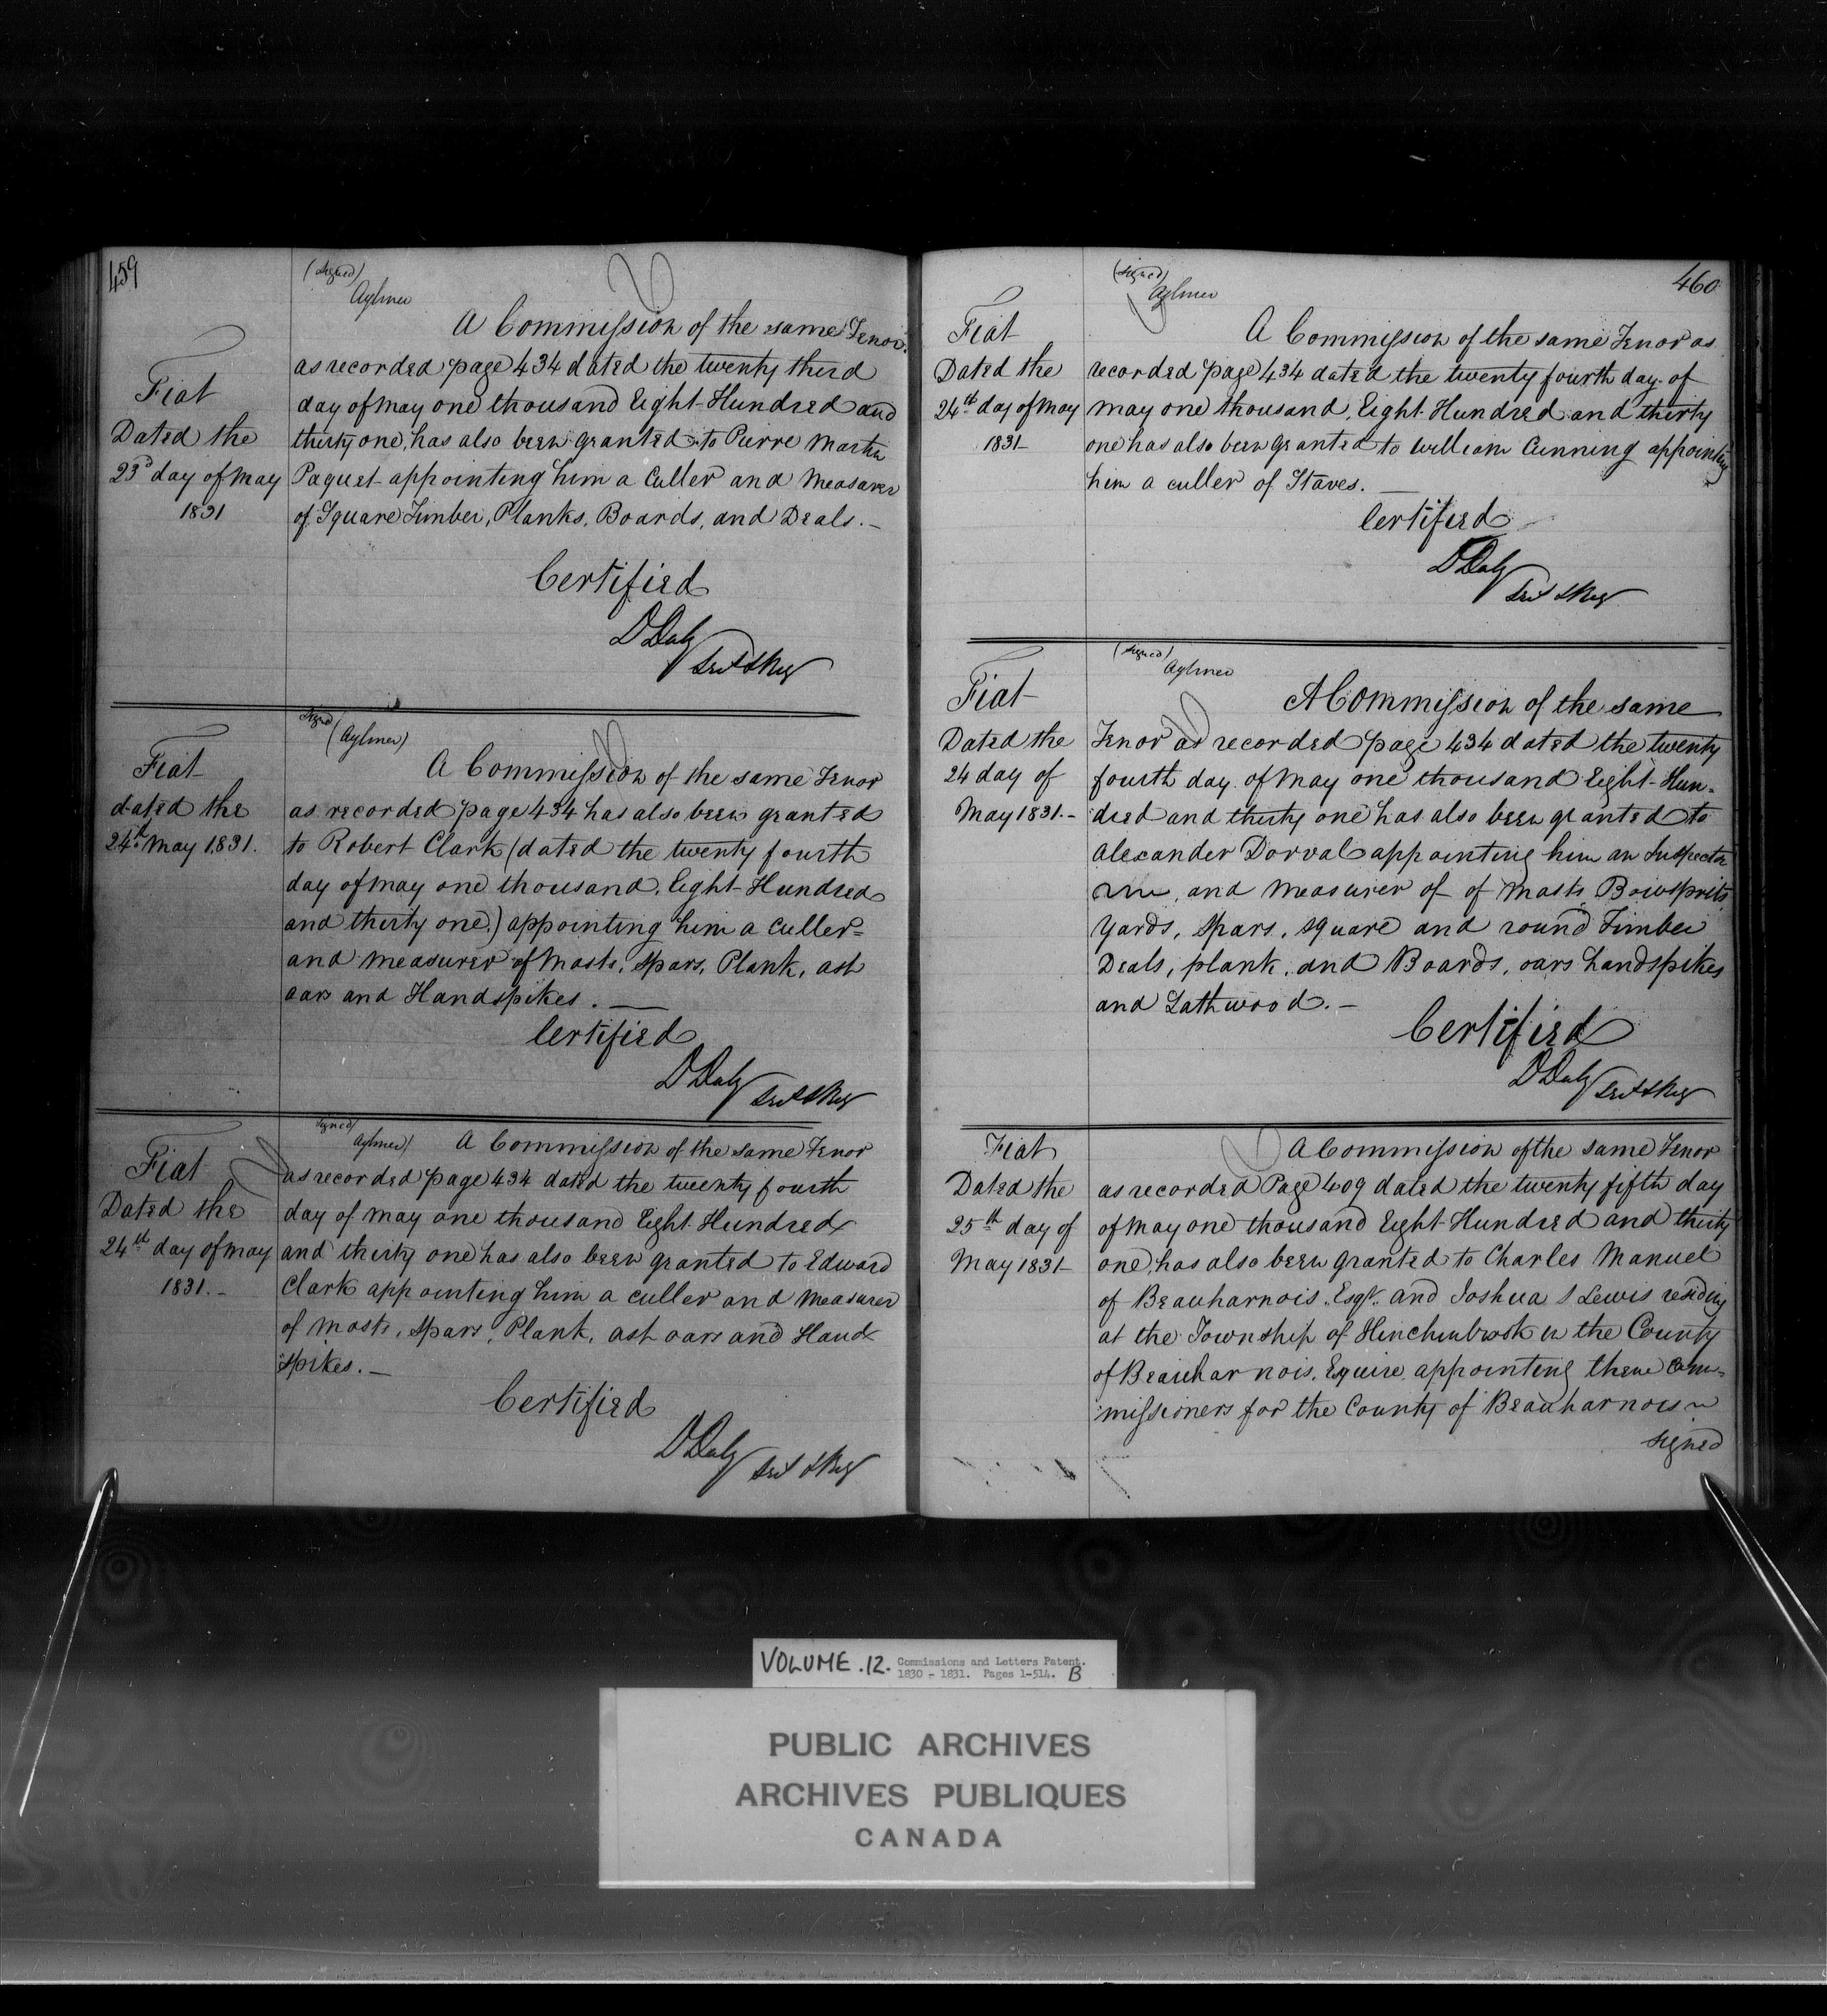 459
(signed)
Aylmer
A Commission of the same Tenor
as recorded page 434 dated the twenty third
day of May one thousand Eight Hundred and
thirty one, has also been granted to Pierre Martin
Paquet appointing him a Culler and Measurer
of Square Timber, Planks, Boards, and Deals. -
Fiat
Dated the
23d day of May
1831
Certified
DDaly
Sect & Reg
Signed
(Aylmer)
A Commission of the same Tenor
as recorded page 434 has also been granted
to Robert Clark (dated the twenty fourth
day of May one thousand, Eight Hundred
and thirty one.) appointing him a Culler =
and measurer of Masts, Spars, Plank, ash
oars and Handspikes. —
Fiat
dated the
24th May 1831.
Certified
DDaly
Sect & Reg
Signed
Aylmer)
A Commission of the same Tenor
as recorded page 434 dated the twenty fourth
day of May one thousand Eight Hundred
and thirty one has also been granted to Edward
Clark appointing him a culler and Measurer
of Masts, Spars, Plank, ash oars and Hand
spikes. —
Fiat
Dated the
24th day of May
1831. -
Certified
DDaly
Sect & Reg
460
(signed)
Aylmer
A Commission of the same Tenor as
recorded page 434 dated the twenty fourth day of
May one thousand, Eight Hundred and thirty
one has also been granted to William Cunning appointing
him a culler of Staves. —
Fiat
Dated the
24th day of May
1831-
Certified
DDaly
Sect & Reg
(signed)
Aylmer
A Commission of the same
Tenor as recorded page 434 dated the twenty
fourth day of May one thousand Eight Hun-
dred and thirty one has also been granted to
Alexander Dorval appointing him an Inspector
and Measurer of of Masts, Bowsprits
Yards, Spars, square and round Timber
Deals, plank, and Boards, oars handspikes
and Lathwood. -
Fiat
Dated the
24 day of
May 1831. -
Certified
DDaly
Sect & Reg
A Commission of the same Tenor
as recorded Page 409 dated the twenty fifth day
of May one thousand Eight Hundred and thirty
one, has also been granted to Charles Manuel
of Beauharnois, Esqr. and Joshua S Lewis residing
at the Township of Hinchinbrook in the County
of Beauharnois, Equire, appointing them Com-
missioners for the County of Beauharnois
signed
Fiat
Dated the
25th day of
May 1831-
VOLUME .12. Commissions and Letters Patent.
1830 - 1831. Pages 1-514. B
PUBLIC ARCHIVES
ARCHIVES PUBLIQUES
CANADA